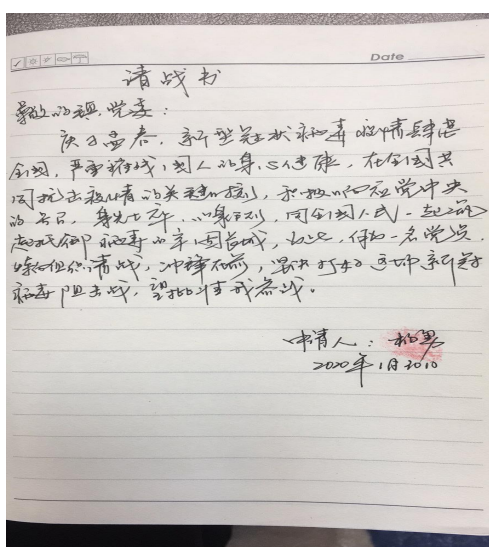 Date
请战书
尊敬的 党委：
庚子孟春，新型冠状病毒疫情肆虐
全国，严重 国人的身心健康，在全国共
同抗击疫情的关键时刻，积极响应党中央
的号召，身先士卒， ，同全国人民一起筑
起抵御病毒的 ，为此，作为一名党员，
特向组织请战，冲锋在前，坚决打好这场新冠
病毒阻击战，望批准我参战。
申请人：杨男
2020年1月30日